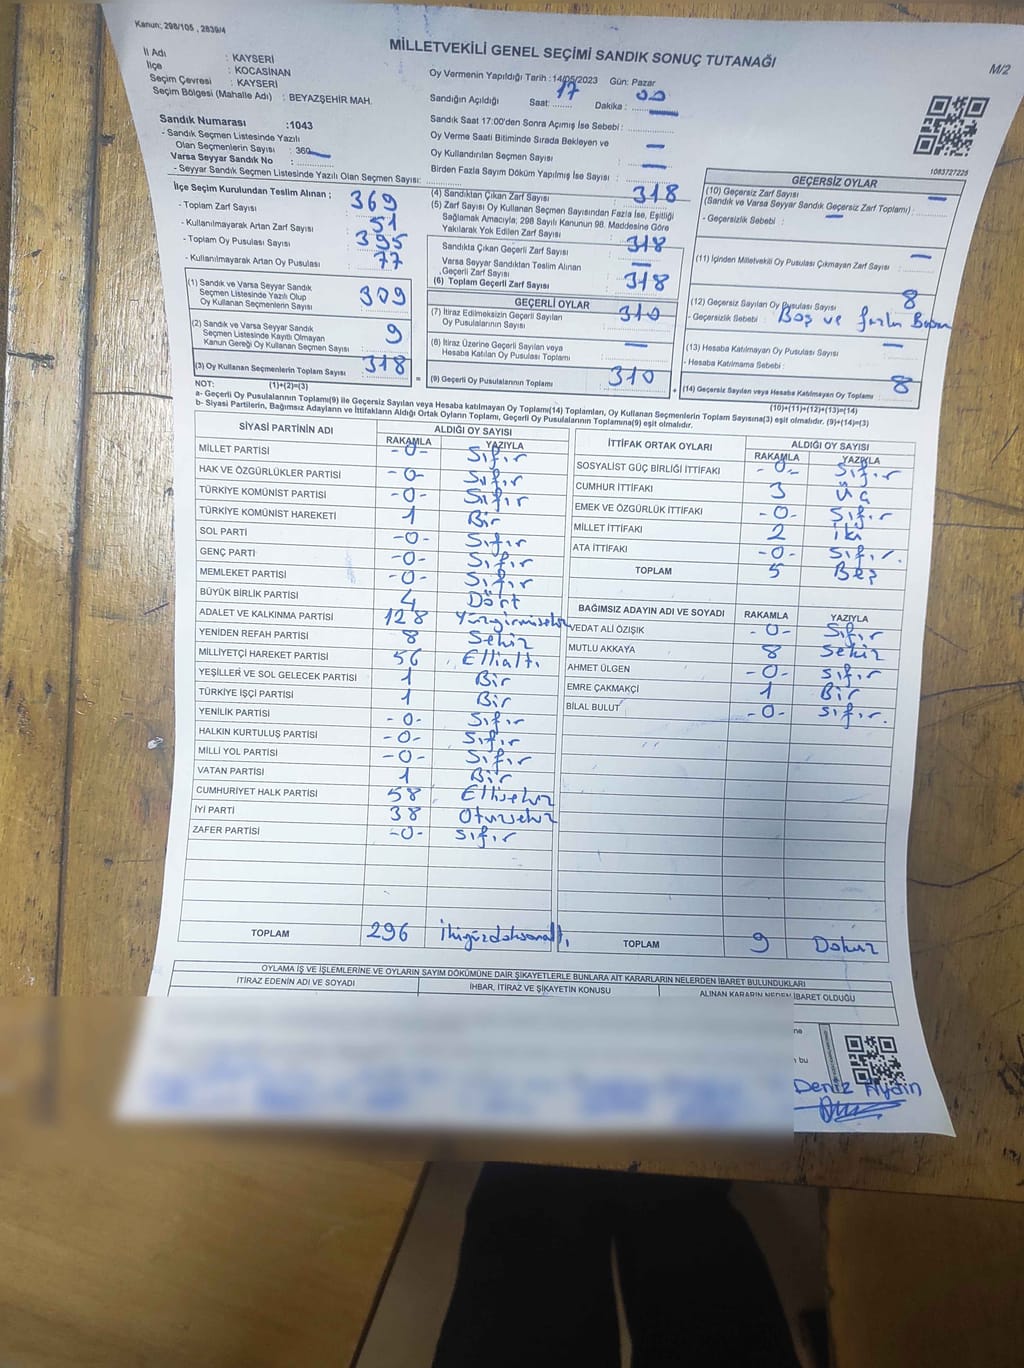 Kanun: 298/105 , 2839/4
MİLLETVEKİLİ GENEL SEÇİMİ SANDIK SONUÇ TUTANAĞI
M/2
İl Adı : KAYSERİ
İlçe : KOCASİNAN
Seçim Çevresi : KAYSERİ
Seçim Bölgesi (Mahalle Adı) : BEYAZŞEHİR MAH.
Sandık Numarası :1043
- Sandık Seçmen Listesinde Yazılı
Olan Seçmenlerin Sayısı : 360
Varsa Seyyar Sandık No :
- Seyyar Sandık Seçmen Listesinde Yazılı Olan Seçmen Sayısı:
Oy Vermenin Yapıldığı Tarih :14/05/2023 Gün: Pazar
Sandığın Açıldığı Saat: 17 Dakika : 00
Sandık Saat 17:00'den Sonra Açımış İse Sebebi :
Oy Verme Saati Bitiminde Sırada Bekleyen ve
Oy Kullandırılan Seçmen Sayısı
Birden Fazla Sayım Döküm Yapılmış İse Sayısı :
1083727226
İlçe Seçim Kurulundan Teslim Alınan ;
- Toplam Zarf Sayısı : 369
- Kullanılmayarak Artan Zarf Sayısı : 51
- Toplam Oy Pusulası Sayısı : 395
- Kullanılmayarak Artan Oy Pusulası : 77
(1) Sandık ve Varsa Seyyar Sandık
Seçmen Listesinde Yazılı Olup
Oy Kullanan Seçmenlerin Sayısı : 309
(2) Sandık ve Varsa Seyyar Sandık
Seçmen Listesinde Kayıtlı Olmayan
Kanun Gereği Oy Kullanan Seçmen Sayısı : 9
(3) Oy Kullanan Seçmenlerin Toplam Sayısı : 318
(4) Sandıktan Çıkan Zarf Sayısı : 318
(5) Zarf Sayısı Oy Kullanan Seçmen Sayısından Fazla İse, Eşitliği
Sağlamak Amacıyla; 298 Sayılı Kanunun 98. Maddesine Göre
Yakılarak Yok Edilen Zarf Sayısı :
Sandıkta Çıkan Geçerli Zarf Sayısı : 318
Varsa Seyyar Sandıktan Teslim Alınan
Geçerli Zarf Sayısı
(6) Toplam Geçerli Zarf Sayısı : 318
GEÇERLİ OYLAR
(7) İtiraz Edilmeksizin Geçerli Sayılan
Oy Pusulalarının Sayısı : 310
(8) İtiraz Üzerine Geçerli Sayılan veya
Hesaba Katılan Oy Pusulası Toplamı :
= (9) Geçerli Oy Pusulalarının Toplamı : 310
GEÇERSİZ OYLAR
(10) Geçersiz Zarf Sayısı
(Sandık ve Varsa Seyyar Sandık Geçersiz Zarf Toplamı) :
- Geçersizlik Sebebi :
(11) İçinden Milletvekili Oy Pusulası Çıkmayan Zarf Sayısı :
(12) Geçersiz Sayılan Oy Pusulası Sayısı : 8
- Geçersizlik Sebebi : Boş ve fazla
(13) Hesaba Katılmayan Oy Pusulası Sayısı :
- Hesaba Katılmama Sebebi :
+ (14) Geçersiz Sayılan veya Hesaba Katılmayan Oy Toplamı : 8
NOT: (1)+(2)=(3) (10)+(11)+(12)+(13)=(14)
a- Geçerli Oy Pusulalarının Toplamı(9) ile Geçersiz Sayılan veya Hesaba katılmayan Oy Toplamı(14) Toplamları, Oy Kullanan Seçmenlerin Toplam Sayısına(3) eşit olmalıdır. (9)+(14)=(3)
b- Siyasi Partilerin, Bağımsız Adayların ve İttifakların Aldığı Ortak Oyların Toplamı, Geçerli Oy Pusulalarının Toplamına(9) eşit olmalıdır.
SİYASİ PARTİNİN ADI ALDIĞI OY SAYISI
RAKAMLA YAZIYLA
MİLLET PARTİSİ -0- Sıfır
HAK VE ÖZGÜRLÜKLER PARTİSİ -0- Sıfır
TÜRKİYE KOMÜNİST PARTİSİ -0- Sıfır
TÜRKİYE KOMÜNİST HAREKETİ 1 Bir
SOL PARTİ -0- Sıfır
GENÇ PARTİ -0- Sıfır
MEMLEKET PARTİSİ -0- Sıfır
BÜYÜK BİRLİK PARTİSİ 4 Dört
ADALET VE KALKINMA PARTİSİ 128 Yüzyirmisekiz
YENİDEN REFAH PARTİSİ 8 Sekiz
MİLLİYETÇİ HAREKET PARTİSİ 56 Ellialtı
YEŞİLLER VE SOL GELECEK PARTİSİ 1 Bir
TÜRKİYE İŞÇİ PARTİSİ 1 Bir
YENİLİK PARTİSİ -0- Sıfır
HALKIN KURTULUŞ PARTİSİ -0- Sıfır
MİLLİ YOL PARTİSİ -0- Sıfır
VATAN PARTİSİ 1 Bir
CUMHURİYET HALK PARTİSİ 58 Ellisekiz
İYİ PARTİ 38 Otuzsekiz
ZAFER PARTİSİ -0- Sıfır
TOPLAM 296 İkiyüzdoksanaltı
İTTİFAK ORTAK OYLARI ALDIĞI OY SAYISI
RAKAMLA YAZIYLA
SOSYALİST GÜÇ BİRLİĞİ İTTİFAKI -0- Sıfır
CUMHUR İTTİFAKI 3 Üç
EMEK VE ÖZGÜRLÜK İTTİFAKI -0- Sıfır
MİLLET İTTİFAKI 2 İki
ATA İTTİFAKI -0- Sıfır.
TOPLAM 5 Beş
BAĞIMSIZ ADAYIN ADI VE SOYADI RAKAMLA YAZIYLA
VEDAT ALİ ÖZIŞIK -0- Sıfır
MUTLU AKKAYA 8 Sekiz
AHMET ÜLGEN -0- Sıfır
EMRE ÇAKMAKÇİ 1 Bir
BİLAL BULUT -0- Sıfır.
TOPLAM 9 Dokuz
OYLAMA İŞ VE İŞLEMLERİNE VE OYLARIN SAYIM DÖKÜMÜNE DAİR ŞİKAYETLERLE BUNLARA AİT KARARLARIN NELERDEN İBARET BULUNDUKLARI
İTİRAZ EDENİN ADI VE SOYADI İHBAR, İTİRAZ VE ŞİKAYETİN KONUSU ALINAN KARARIN NEDEN İBARET OLDUĞU
Deniz Aydın